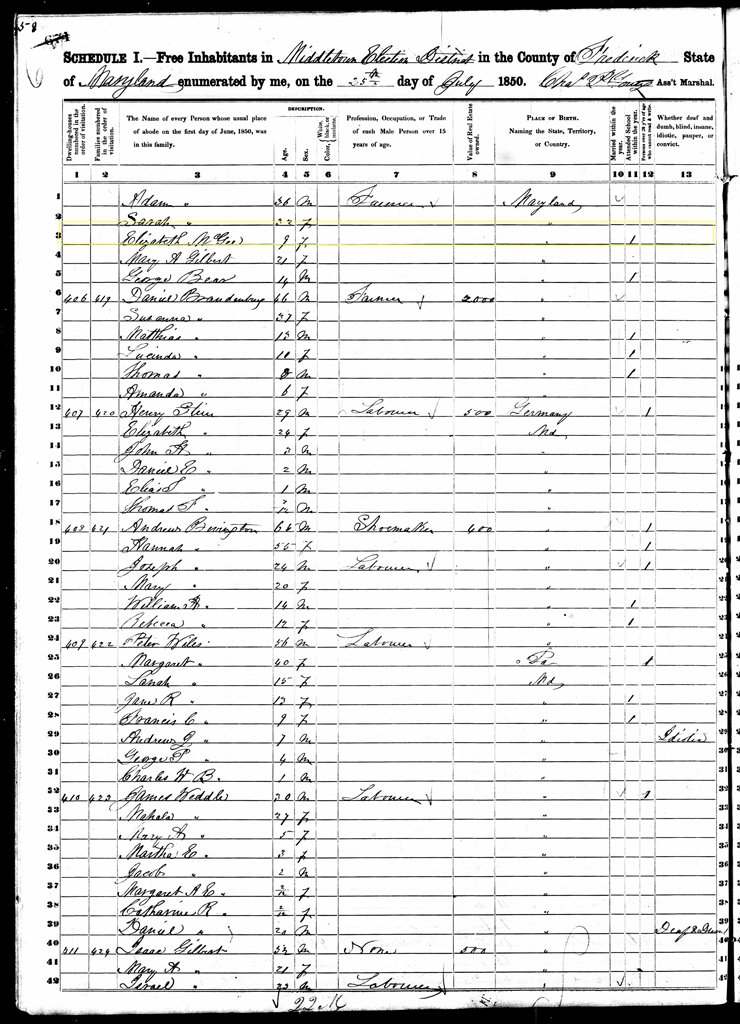 58
SCHEDULE I.—Free Inhabitants in Middletown Election District in the County of Frederick State
of Maryland enumerated by me, on the 25th day of July 1850. Ass't Marshal.
Dwelling-houses numbered in the order of visitation. Families numbered in the order of visitation. The Name of every Person whose usual place of abode on the first day of June, 1850, was in this family. DESCRIPTION. Age. Sex. Color, White, black, or mulatto. Profession, Occupation, or Trade of each Male Person over 15 years of age. Value of Real Estate owned. PLACE OF BIRTH. Naming the State, Territory, or Country. Married within the year. Attended School within the year. Persons over 20 y'rs of age who cannot read & write. Whether deaf and dumb, blind, insane, idiotic, pauper, or convict.
1 2 3 4 5 6 7 8 9 10 11 12 13
1 Adam " 36 M Farmer Maryland
2 Sarah " 32 F " 2
3 Elizabeth McGee 9 F " 1 3
4 Mary A Gilbert 21 F " 4
5 George Bear 14 M " 1 5
6 406 419 Daniel Brandenburg 46 M Farmer 2000 " 6
7 Susanna " 37 F " 7
8 Matthias " 13 M " 1 8
9 Lucinda " 10 F " 1 9
10 Thomas " 8 M " 1 10
11 Amanda " 6 F " 11
12 407 420 Henry 29 M Labourer 500 Germany 1 12
13 Elizabeth " 24 F Md 13
14 John H " 3 M " 14
15 Daniel E " 2 M " 15
16 Elias S " 1 M " 16
17 Thomas F " /12 M " 17
18 408 421 Andrew Bevington 66 M Shoemaker 400 " 1 18
19 Hannah " 55 F " 1 19
20 Joseph " 24 M Labourer " 1 20
21 Mary " 20 F " 21
22 William H " 14 M " 1 22
23 Rebecca " 12 F " 1 23
24 409 422 Peter Wiles 56 M Labourer " 24
25 Margaret " 40 F Pa 1 25
26 Sarah " 15 F Md 26
27 Jane R " 13 F " 1 27
28 Francis C " 9 F " 1 28
29 Andrew J " 7 M " 29
30 George P " 4 M " 30
31 Charles W B. 1 M " 31
32 410 423 James Weddle 30 M Labourer " 1 32
33 Mahala " 27 F " 33
34 Mary A " 5 F " 34
35 Martha E " 3 F " 35
36 Jacob " 2 M " 36
37 Margaret A E " 2/12 F " 37
38 Catharine R " 2/12 F " 38
39 Daniel " 20 M " Deaf & Dumb 39
40 411 424 Isaac Gilbert 52 M None 500 " 40
41 Mary A " 21 F " 41
42 Israel " 23 M Labourer " 42
22 M